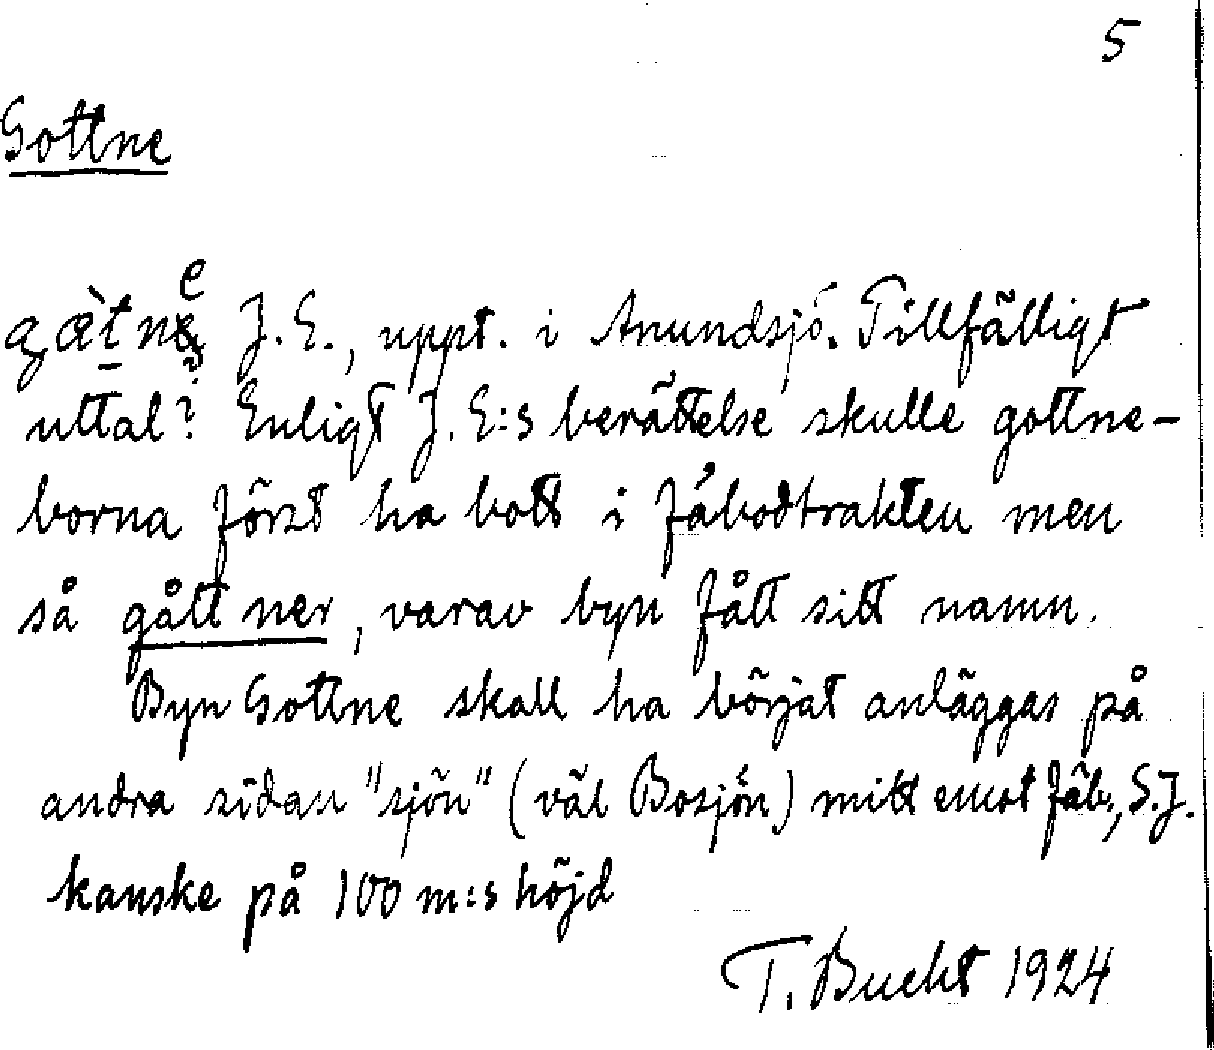 5
Gottne
gæ̀tne J. E., uppt. i Anundsjö. Tillfälligt
uttal? Enligt J. E:s berättelse skulle gottne-
borna först ha bott i fäbodtrakten men
så gått ner, varav byn fått sitt namn.
Byn Gottne skall ha börjat anläggas på
andra sidan "sjön" (väl Bosjön) mitt emot fäb., S.J.
kanske på 100 m:s höjd
T. Bucht 1924